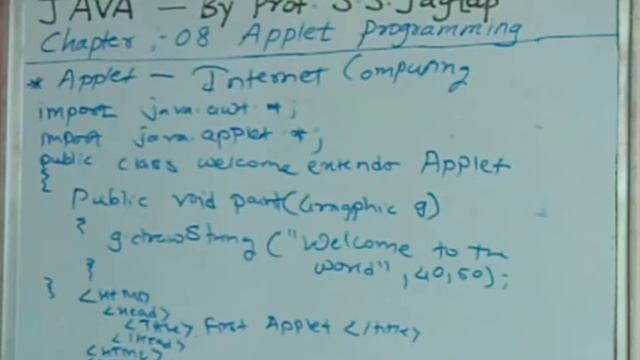 JAVA - By Prof. S.S. Jagtap
Chapter :- 08 Applet Programming
* Applet - Internet Computing
import java.awt.*;
import java.applet.*;
public class welcome extends Applet
{
Public void paint(Graphic g)
{
g.drawString ("Welcome to the
world", 40,50);
}
}
<HTML>
<Head>
<Title> First Applet </title>
</Head>
<HTML>